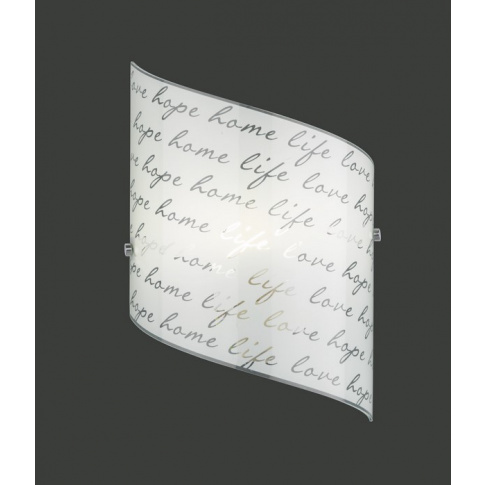 love hope home life love
hope home life love hope
hope home life love hope
hope home life love hope
hope home life love hope
hope home life love hope
hope home life love hope
hope home life love hope